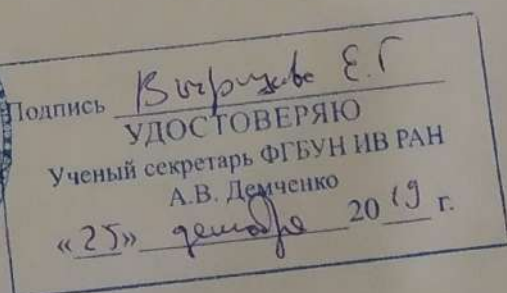 Подпись Вырщиков Е.Г
УДОСТОВЕРЯЮ
Ученый секретарь ФГБУН ИВ РАН
А.В. Демченко
«25» декабря 2019 г.